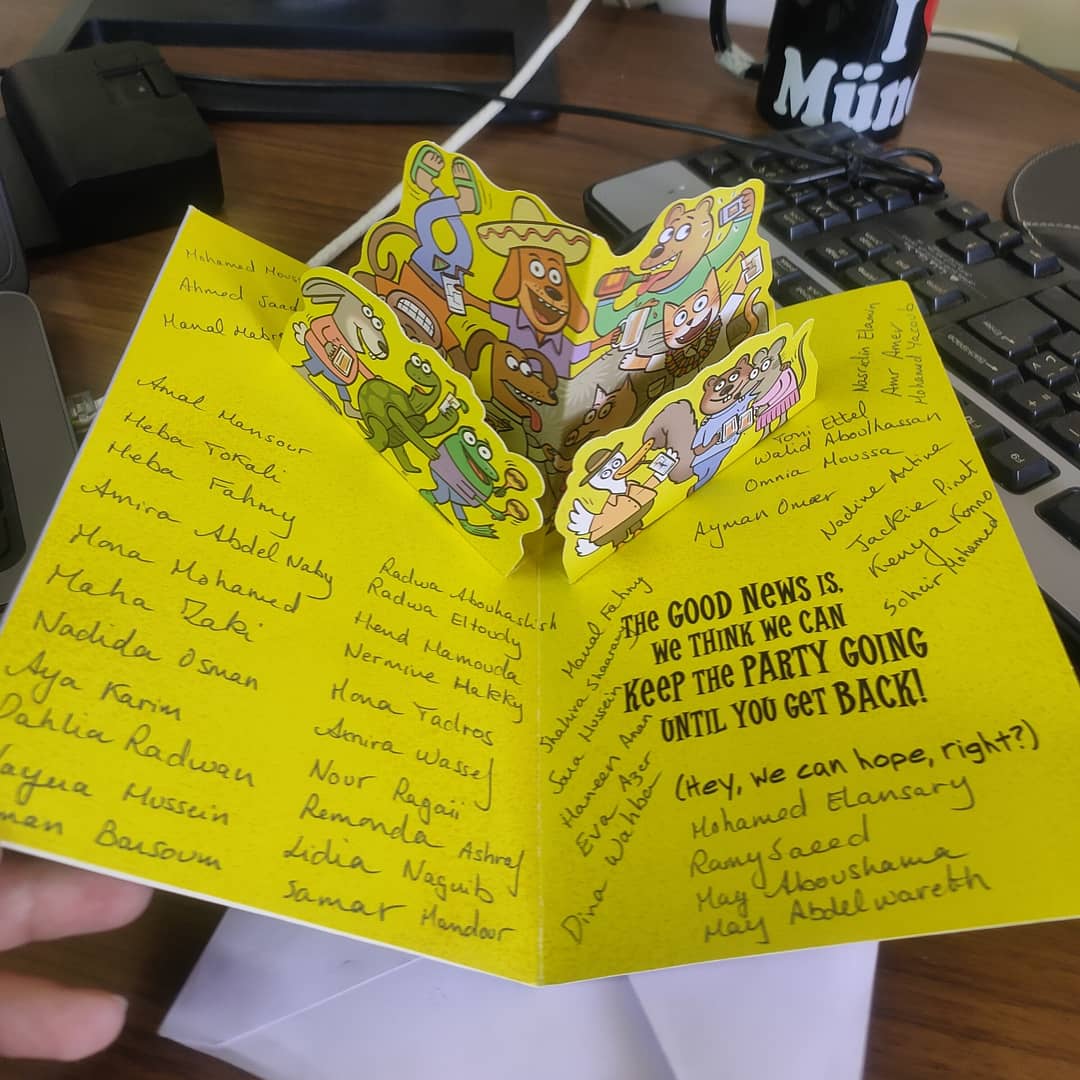 I
Mün
Mohamed
Ahmed Saad
Manal
Amal Mansour
Heba Tokali
Heba Fahmy
Amira Abdel Naby
Mona Mohamed
Maha Zaki
Nadida Osman
Aya Karim
Dahlia Radwan
Hussein
Barsoum
Radwa Abouhashish
Radwa Eltoudy
Hend Hamouda
Nermine Hakky
Mona Yadros
Amira Wassef
Nour Ragaii
Remonda Ashraf
Lidia Naguib
Samar Mandour
Nasredin Elamin
Amr Amer
Mohamed Yacoub
Toni Ettel
Walid Aboulhassan
Omnia Moussa
Ayman Omar
Nadine Antine
Jackie Pinet
Kenya Konno
Soheir Mohamed
Manal Fahmy
Shahira Shaarawy
Sara Hussein
Haneen Anan
Eva Azer
Dina Wahba
THE GOOD NEWS IS,
WE THINK WE CAN
KEEP THE PARTY GOING
UNTIL YOU GET BACK!
(Hey, we can hope, right?)
Mohamed Elansary
Ramy Saeed
May Aboushama
May Abdelwareth